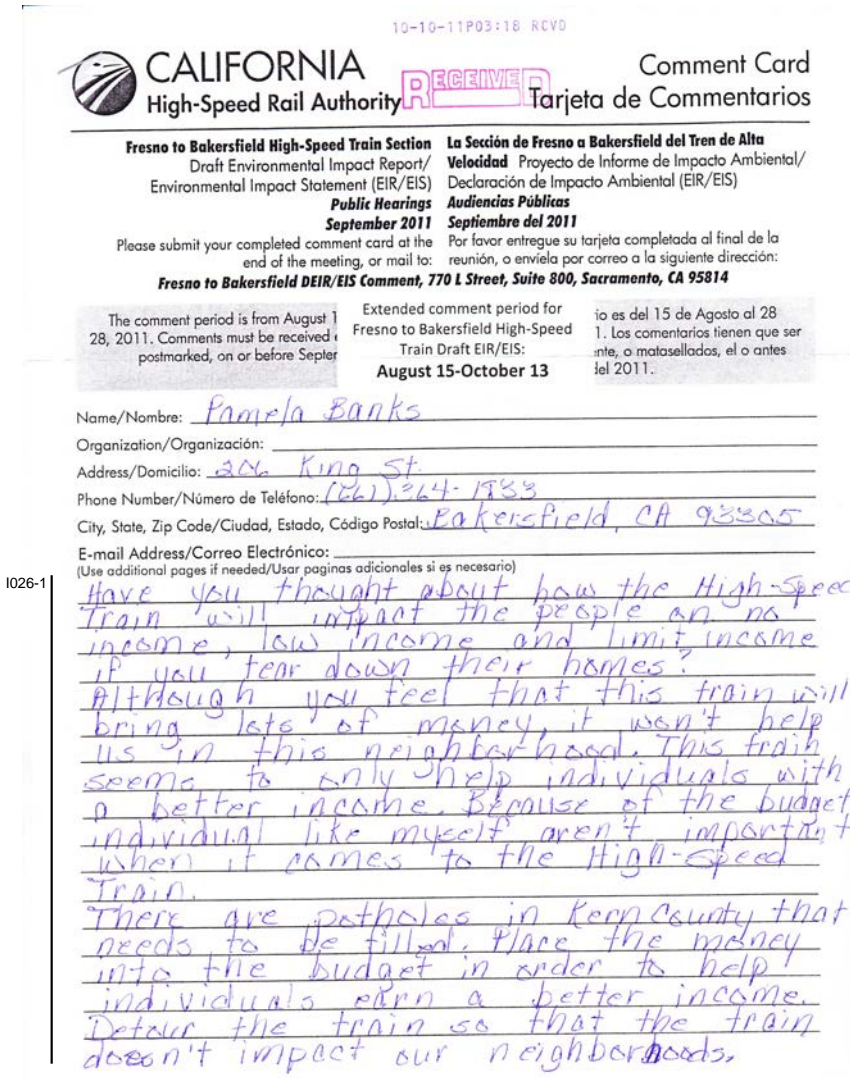 10-10-11P03:18 RCVD
CALIFORNIA
High-Speed Rail Authority
RECEIVED
Comment Card
Tarjeta de Commentarios
Fresno to Bakersfield High-Speed Train Section
Draft Environmental Impact Report/
Environmental Impact Statement (EIR/EIS)
Public Hearings
September 2011
Please submit your completed comment card at the
end of the meeting, or mail to:
La Sección de Fresno a Bakersfield del Tren de Alta
Velocidad Proyecto de Informe de Impacto Ambiental/
Declaración de Impacto Ambiental (EIR/EIS)
Audiencias Públicas
Septiembre del 2011
Por favor entregue su tarjeta completada al final de la
reunión, o envíela por correo a la siguiente dirección:
Fresno to Bakersfield DEIR/EIS Comment, 770 L Street, Suite 800, Sacramento, CA 95814
The comment period is from August 1
28, 2011. Comments must be received
postmarked, on or before Septer
Extended comment period for
Fresno to Bakersfield High-Speed
Train Draft EIR/EIS:
August 15-October 13
io es del 15 de Agosto al 28
1. Los comentarios tienen que ser
nte, o matasellados, el o antes
del 2011.
Name/Nombre: Pamela Banks
Organization/Organización:
Address/Domicilio: 206 King St.
Phone Number/Número de Teléfono: (661) 364-1933
City, State, Zip Code/Ciudad, Estado, Código Postal: Bakersfield, CA 93305
E-mail Address/Correo Electrónico:
(Use additional pages if needed/Usar paginas adicionales si es necesario)
I026-1
Have you thought about how the High-Speed
Train will impact the people on no
income, low income and limit income
if you tear down their homes?
Although you feel that this train will
bring lots of money, it won't help
us in this neighborhood. This train
seems to only help individuals with
a better income. Because of the budget
individual like myself aren't important
when it comes to the High-Speed
Train.
There are potholes in Kern County that
needs to be filled. Place the money
into the budget in order to help
individuals earn a better income.
Detour the train so that the train
doesn't impact our neighborhoods.